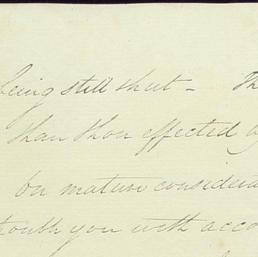 being still shut - Th
than thou effected
on mature considerat
you with acco